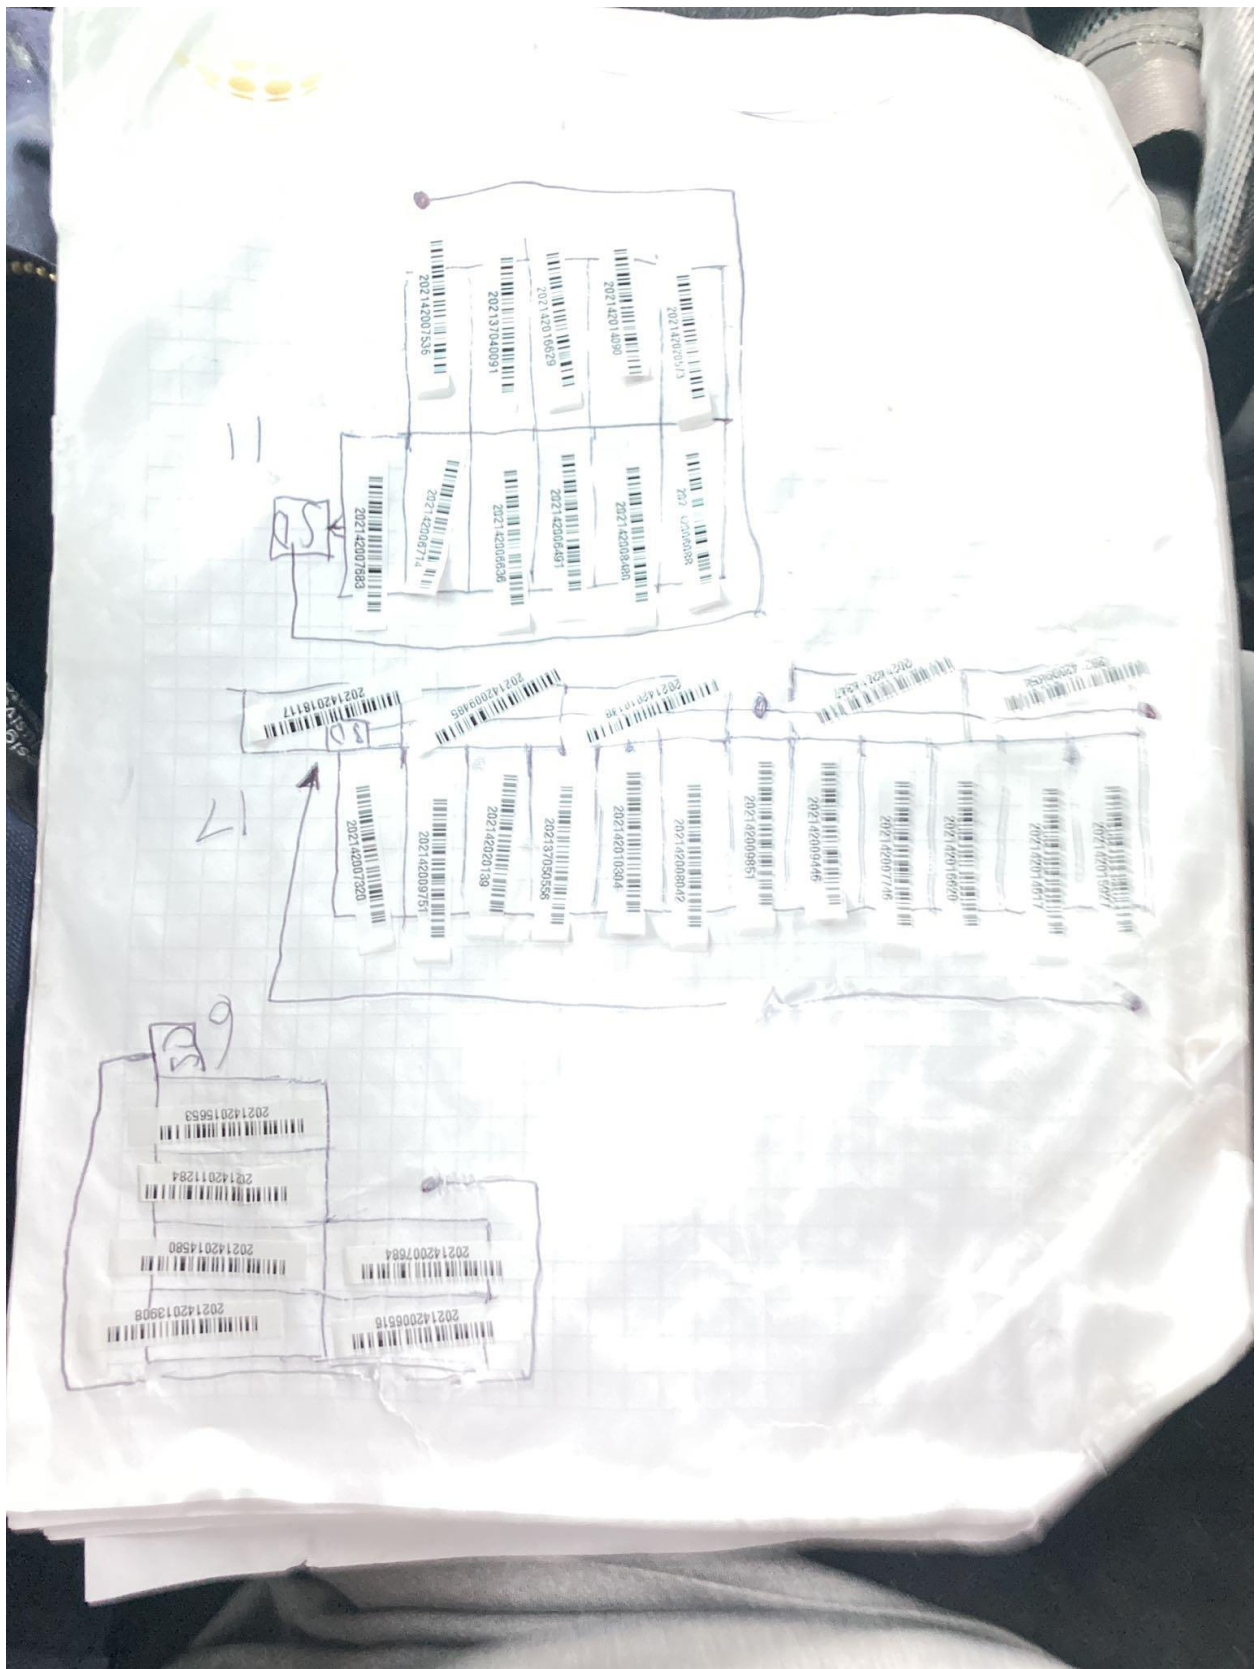 11
202142007536
202137040091
202142016629
202142014090
202142007683
202142006714
202142006636
202142006491
202142008480
17
202142018117
202142009485
202142007320
202142009751
202142020139
202137050556
202142010304
202142008042
202142009851
202142009446
202142007746
202142016620
6
202142015653
202142011284
202142014580
202142013908
202142007684
202142006516